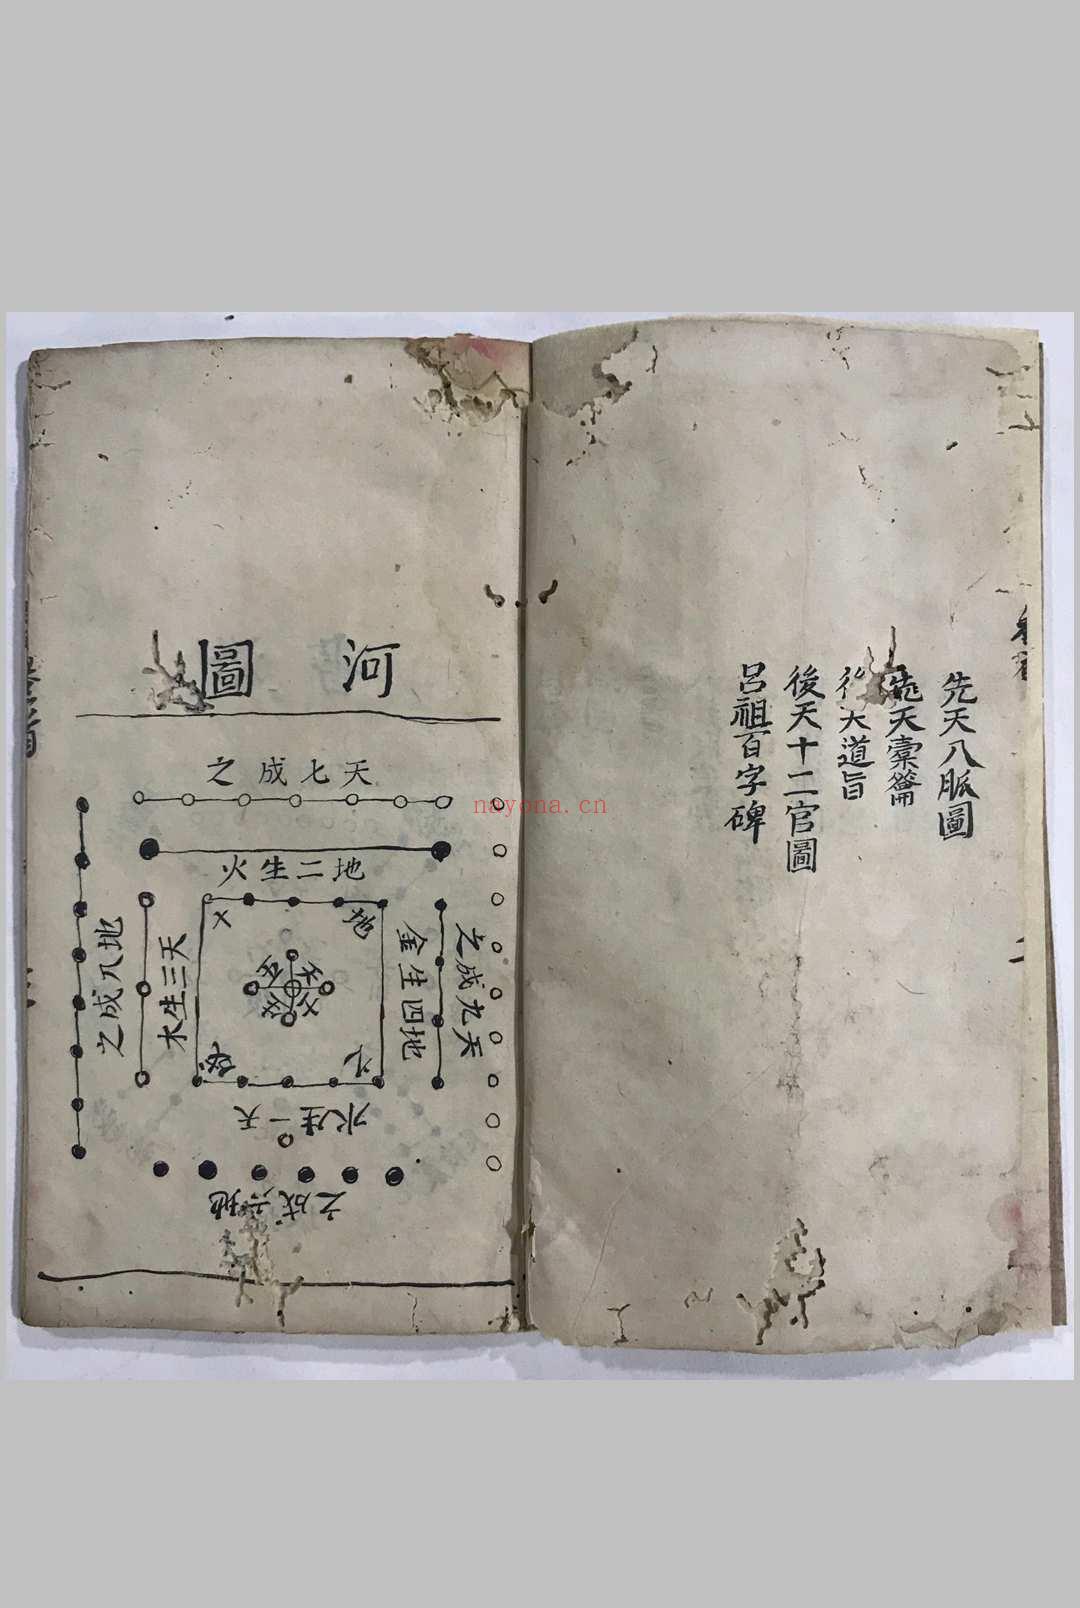 先天八脈圖
先天橐籥
後天道旨
後天十二官圖
呂祖百字碑
河圖
天七成之
地二生火
天三生木
地八成之
地四生金
天九成之
天一生水
地六成之
nayona.cn